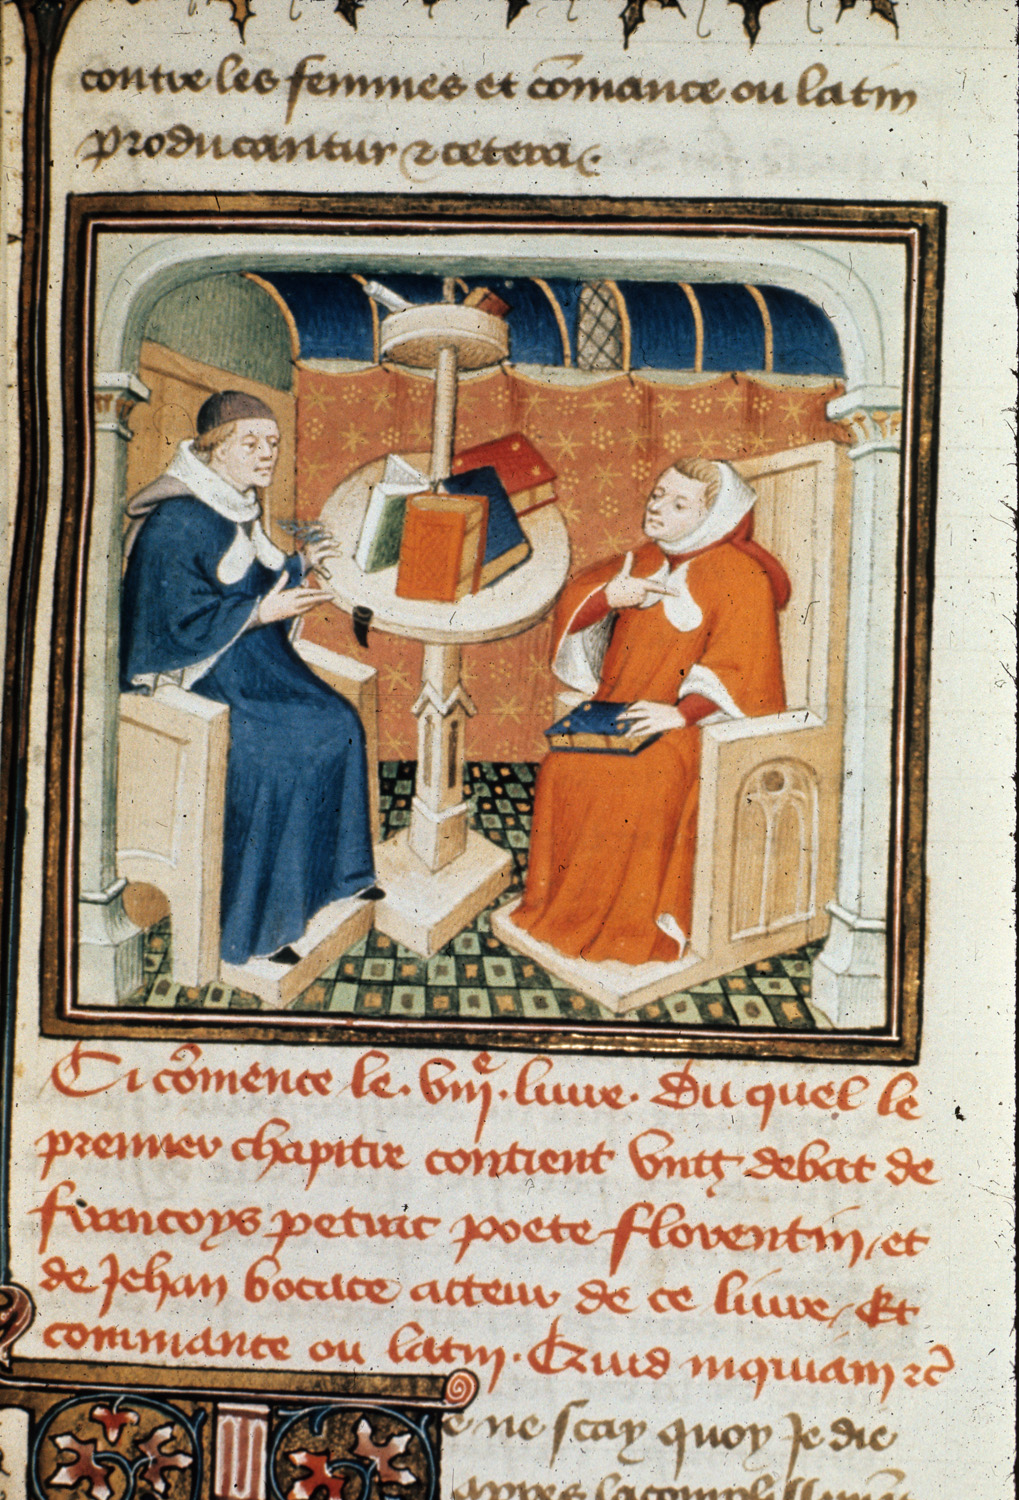 contre les femmes et cõmance ou latin
producantur ⁊ cetera.
Ci cõmence le .viijᵉ. liure. Du quel le
premier chapitre contient vntz debat de
francoys petrac poete florentin / et
de Jehan bocace acteur de ce liure / Et
commance ou latin. Quid inquiam ⁊c̃
e ne scay quoy Je die
apres